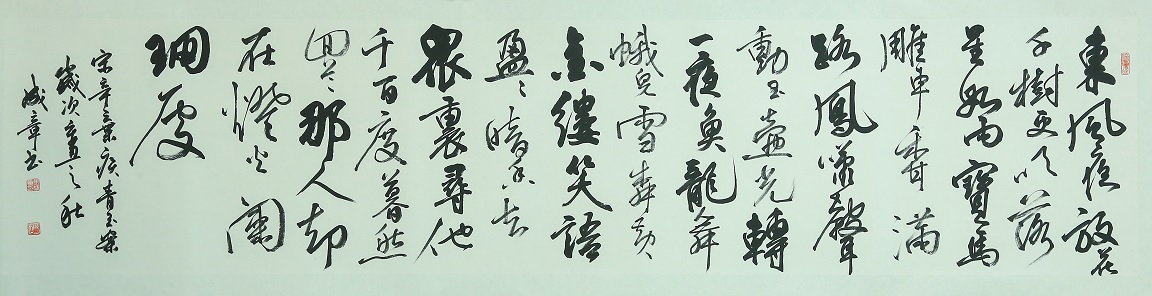 東風夜放花
千樹更吹落
星如雨寶馬
雕車香滿
路鳳簫聲
動玉壺光轉
一夜魚龍舞
蛾兒雪柳黃
金縷笑語
盈〻暗香去
衆裏尋他
千百度暮然
回首那人却
在燈火闌
珊處
宋辛棄疾青玉案
歲次辛丑之秋
成章書